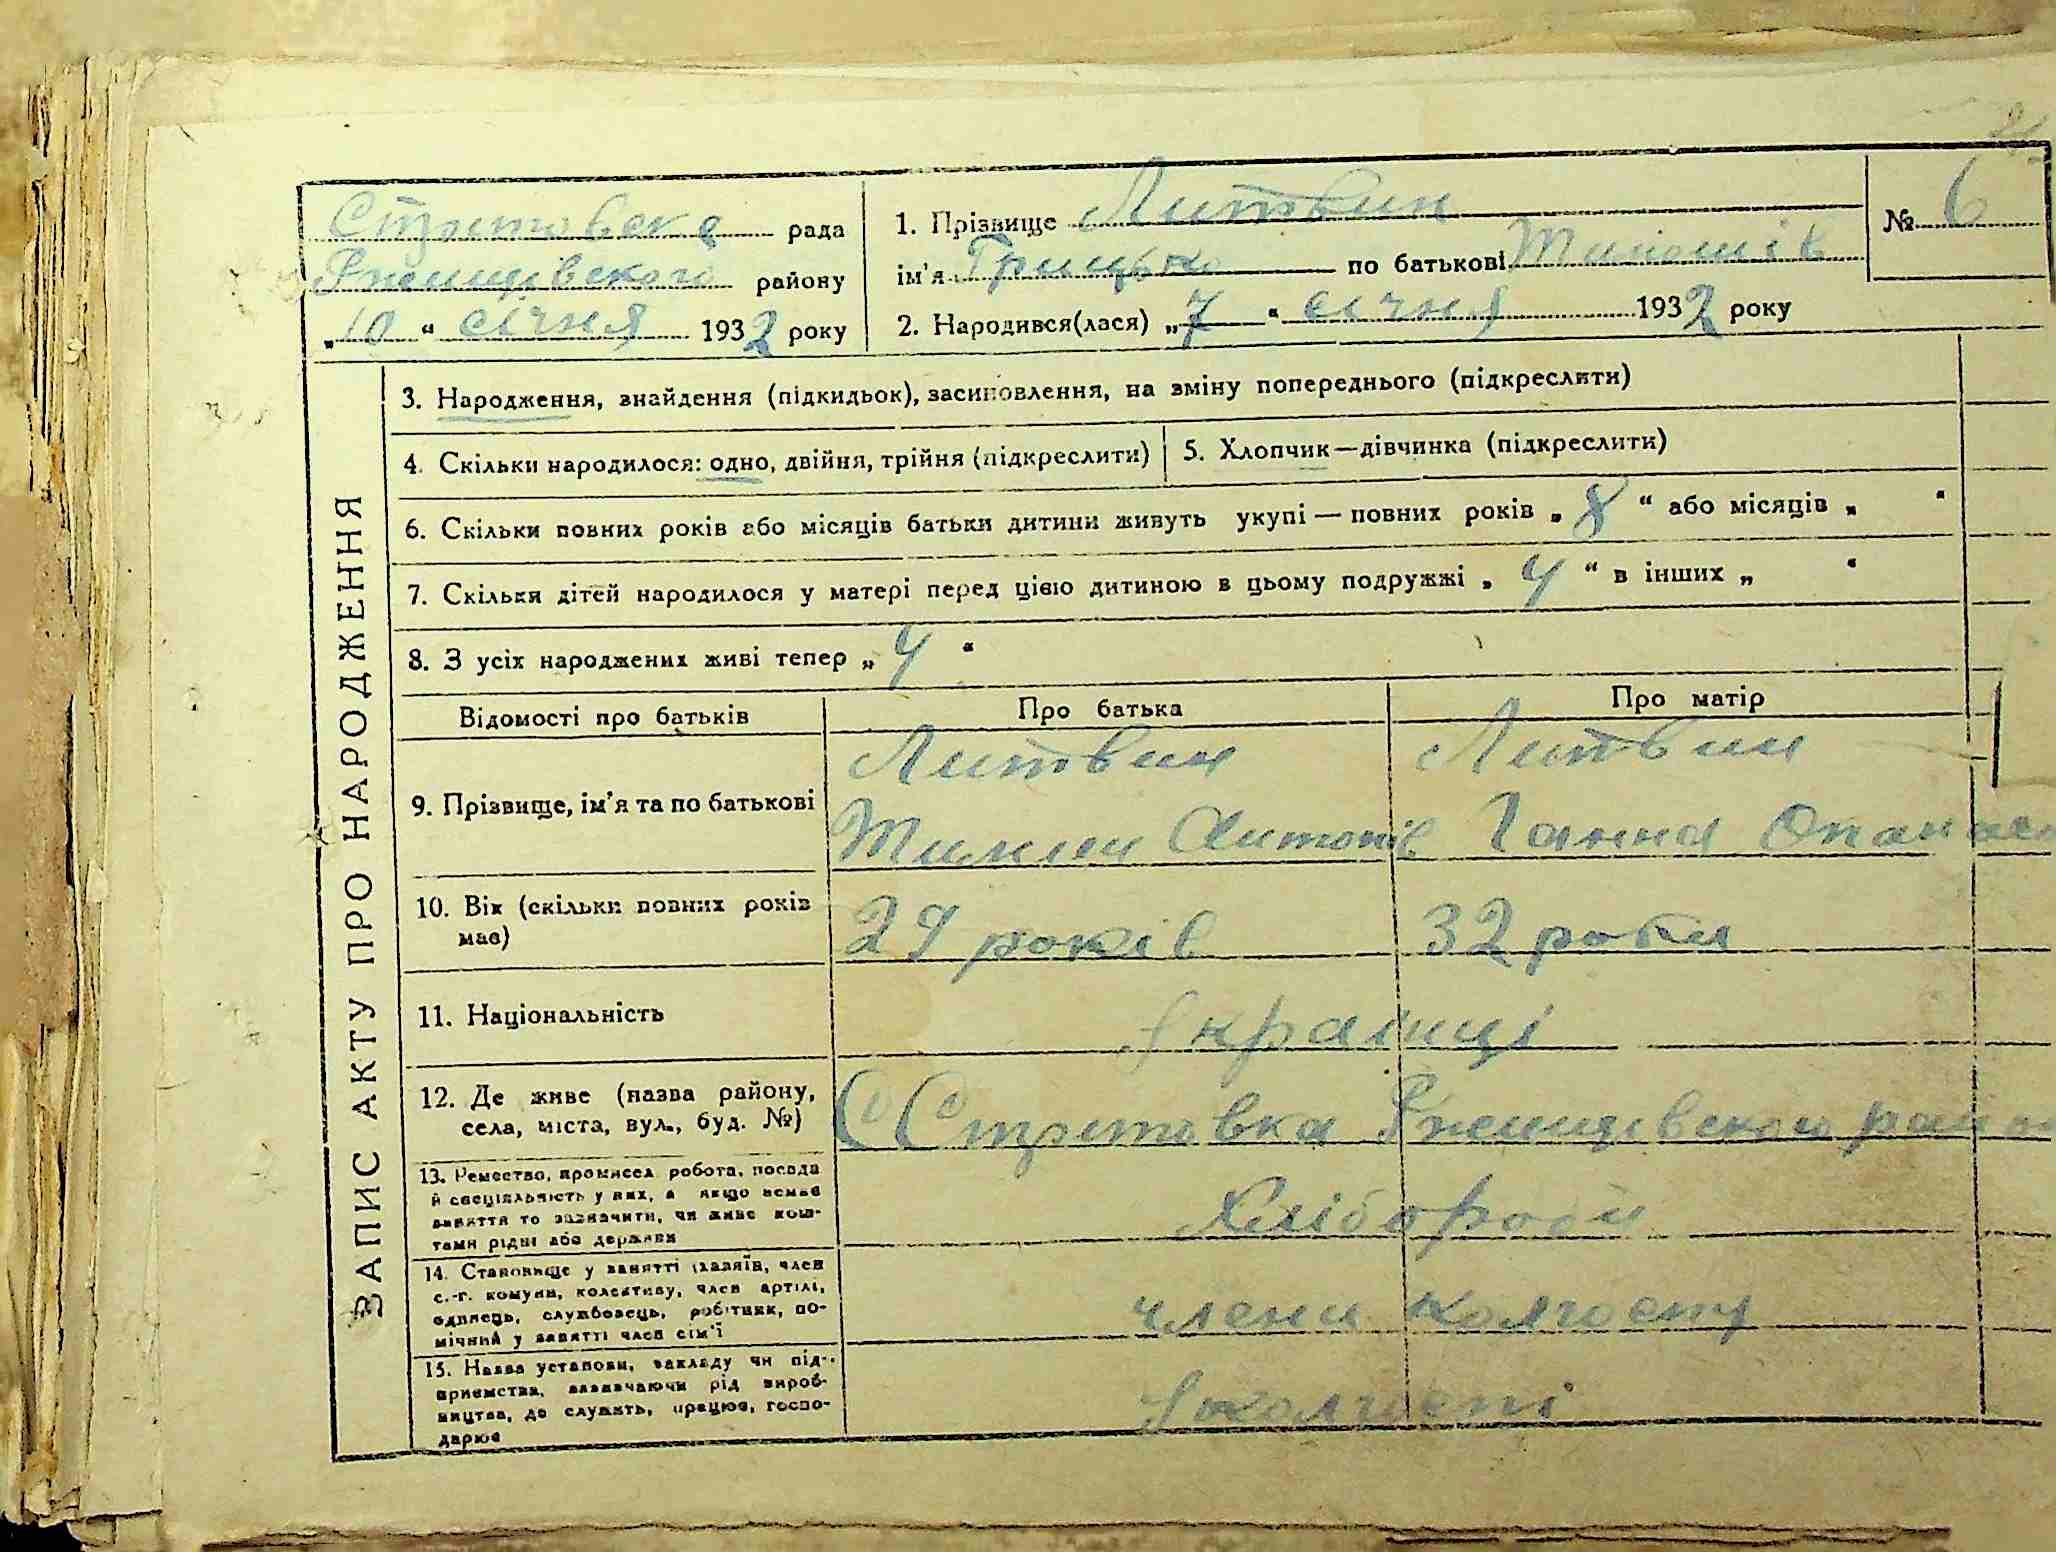 Стрітовска рада
Ржищівського району
„10“ січня 1932 року
1. Прізвище Литвин
ім'я Грицько по батькові
2. Народився(лася) „7“ січня 1932 року
№ 6
ЗАПИС АКТУ ПРО НАРОДЖЕННЯ
3. Народження, знайдення (підкидьок), засиновлення, на зміну попереднього (підкреслити)
4. Скільки народилося: одно, двійня, трійня (підкреслити)
5. Хлопчик—дівчинка (підкреслити)
6. Скільки повних років або місяців батьки дитини живуть укупі — повних років „8“ або місяців „ “
7. Скільки дітей народилося у матері перед цією дитиною в цьому подружжі „4“ в інших „ “
8. З усіх народжених живі тепер „4“
Відомості про батьків Про батька Про матір
9. Прізвище, ім'я та по батькові
Литвин Литвин
Антонів Ганна
10. Вік (скільки повних років
має)
29 років 32 роки
11. Національність
Українці
12. Де живе (назва району,
села, міста, вул., буд. №)
Стрітовка Ржищівского
13. Ремество, промисел, робота, посада
й спеціяльність у них, а якщо немає
заняття то зазначити, чи живе кош-
тами рідні або держави
Хлібороби
14. Становище у занятті (хазяїн, член
с.-г. комуни, колективу, член артілі,
одинець, службовець, робітник, по-
мічний у занятті член сім'ї
члени колгоспу
15. Назва установи, закладу чи під-
приємства, зазначаючи рід вироб-
ництва, де служить, працює, госпо-
дарює
У колгоспі